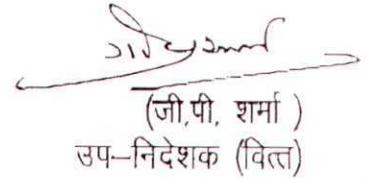 (जी.पी. शर्मा )
उप–निदेशक (वित्त)